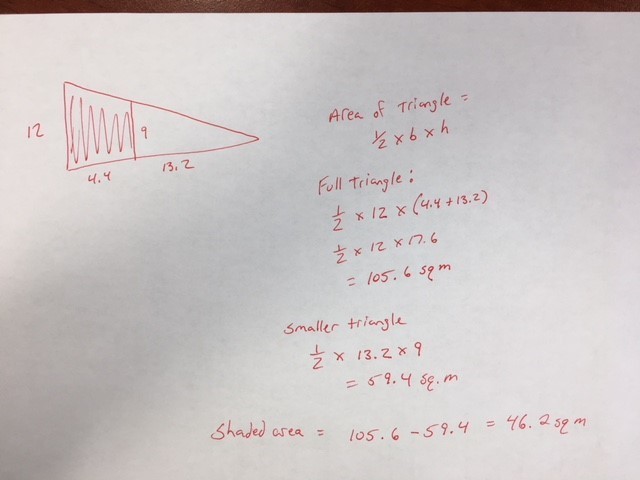 12
9
4.4
13.2
Area of Triangle =
1/2 x b x h
Full Triangle:
1/2 x 12 x (4.4 + 13.2)
1/2 x 12 x 17.6
= 105.6 sq m
Smaller triangle
1/2 x 13.2 x 9
= 59.4 sq.m
Shaded area = 105.6 - 59.4 = 46.2 sq m